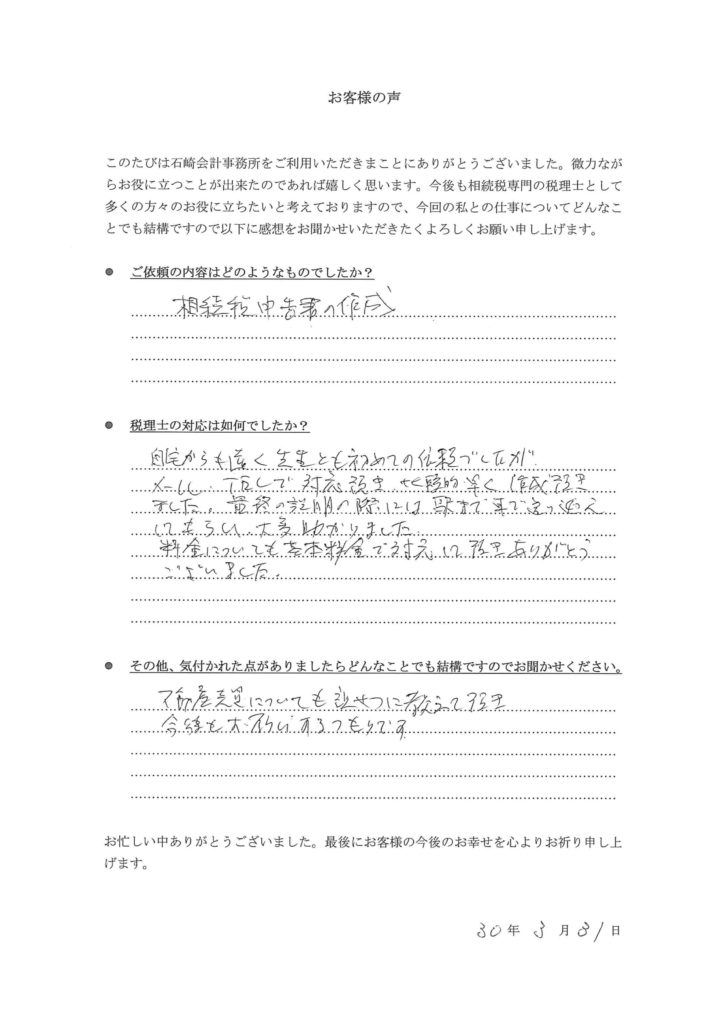 お客様の声
このたびは石崎会計事務所をご利用いただきまことにありがとうございました。微力なが
らお役に立つことが出来たのであれば嬉しく思います。今後も相続税専門の税理士として
多くの方々のお役に立ちたいと考えておりますので、今回の私との仕事についてどんなこ
とでも結構ですので以下に感想をお聞かせいただきたくよろしくお願い申し上げます。
● ご依頼の内容はどのようなものでしたか？
相続税申告書の作成
● 税理士の対応は如何でしたか？
自宅からも遠く先生とも初めての依頼でしたが
メール、で対応頂き、比較的早く作成頂き
ました。最終の説明の際には駅まで車で迎え
てもらい、大変助かりました。
料金についても基本料金で対応して頂きありがとう
ございました。
● その他、気付かれた点がありましたらどんなことでも結構ですのでお聞かせください。
不動産売買についても親せつに教えて頂き
今後もお願いするつもりです
お忙しい中ありがとうございました。最後にお客様の今後のお幸せを心よりお祈り申し上
げます。
30年 3月 31日